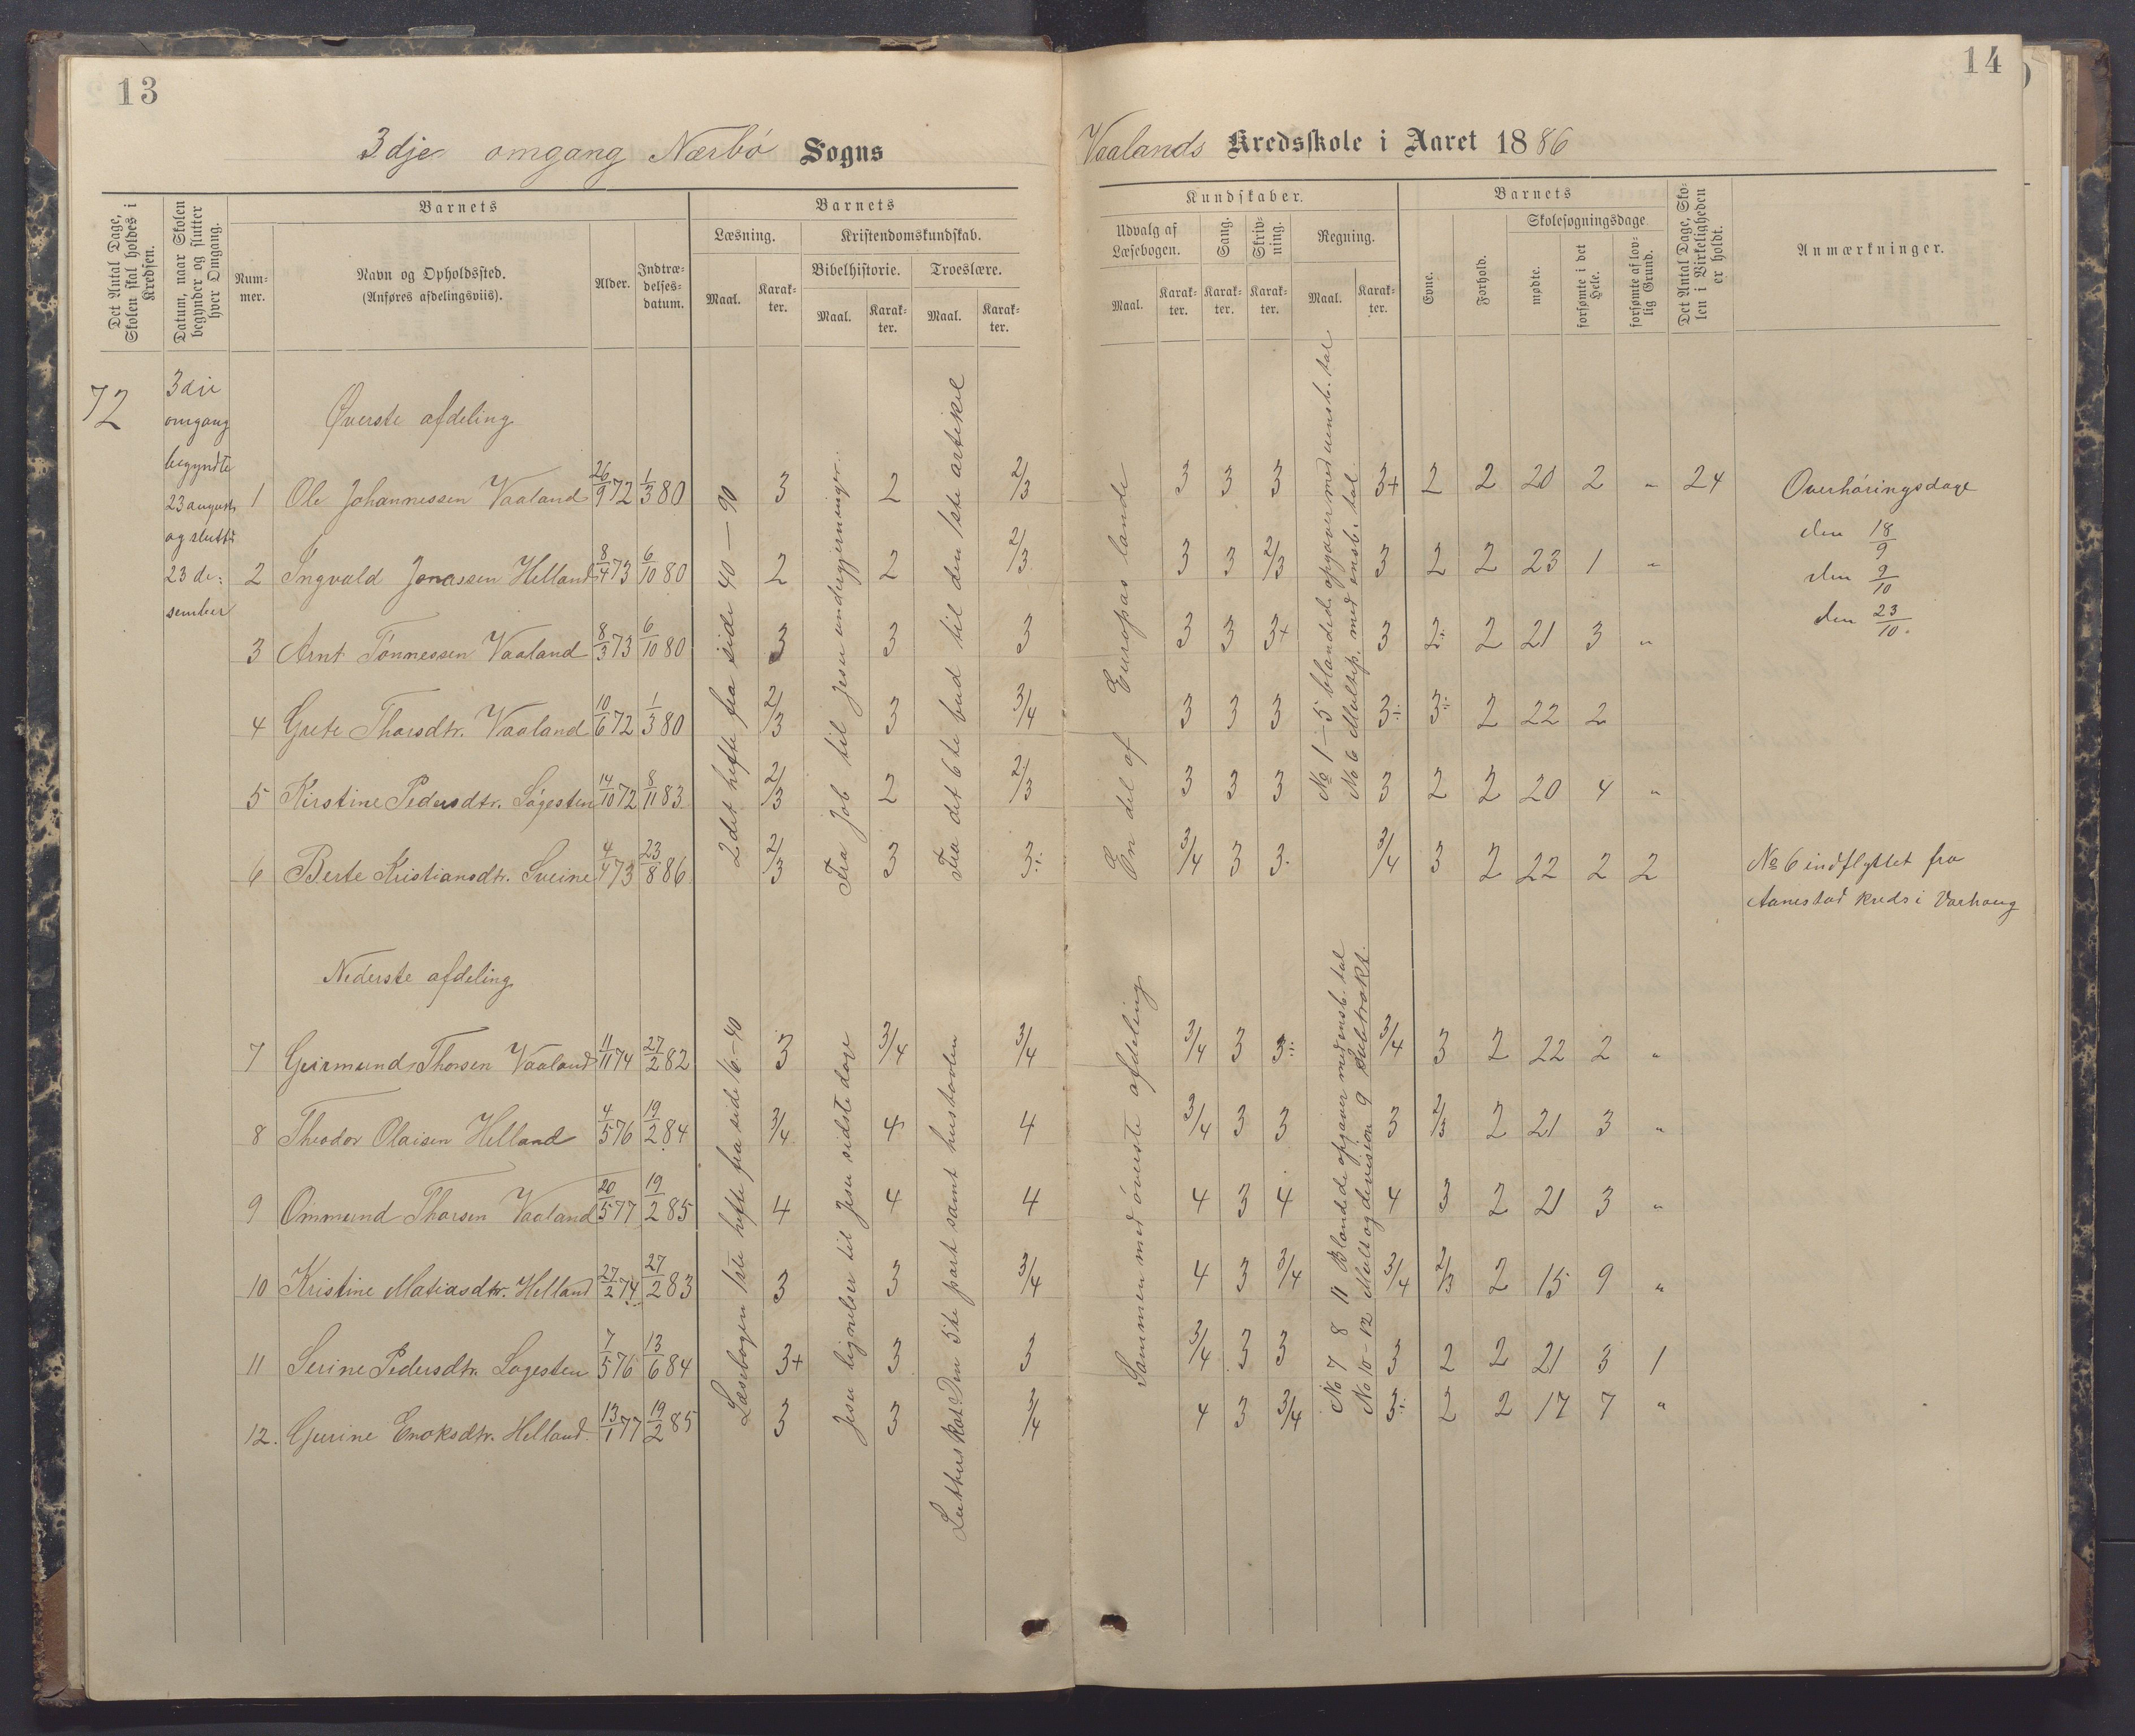 13
14
3dje omgang Nærbö Sogns
Vaalands Kredsskole i Aaret 1886
Det Antal Dage, Skolen skal holdes i Kredsen.
Datum, naar Skolen begynder og slutter hver Omgang.
Barnets
Nummer.
Navn og Opholdssted.
(Anføres afdelingsviis).
Alder.
Indtrædelsesdatum.
Barnets
Læsning.
Maal.
Karakter.
Kristendomskundskab.
Bibelhistorie.
Maal.
Karakter.
Troeslære.
Maal.
Karakter.
Kundskaber.
Udvalg af Læsebogen.
Maal.
Karakter.
Sang.
Karakter.
Skrivning.
Karakter.
Regning.
Maal.
Karakter.
Barnets
Evne.
Forhold.
Skolesøgningsdage.
mødte.
forsømte i det Hele.
forsømte af lovlig Grund.
Det Antal Dage, Skolen i Virkeligheden er holdt.
Anmærkninger.
72
3die
omgang
begyndte
23 august
og slutte
23 de:
sember
Øverste afdeling
1 Ole Johannessen Vaaland 26/9 72 1/3 80 3 2 2/3 3 3 3 3+ 2 2 20 2 " 24
2 Ingvald Jonassen Helland 8/4 73 6/10 80 2 2 2/3 3 3 2/3 3 2 2 23 1 "
3 Arnt Tönnessen Vaaland 8/3 73 6/10 80 3 3 3 3 3 3+ 3 2÷ 2 21 3 "
4 Grete Thorsdtr. Vaaland 10/6 72 1/3 80 2/3 3 3/4 3 3 3 3÷ 3÷ 2 22 2
5 Kirstine Pedersdtr. Lögesten 14/10 72 8/11 83 2/3 2 2/3 3 3 3 3 2 2 20 4 "
6 Berte Kristiansdtr. Sveine 4/4 73 23/8 86 2/3 3 3÷ 3/4 3 3 3/4 3 2 22 2 2
2det hefte fra side 40 — 90
Fra Job til Jesu undergjerninger.
Fra det 6te bud til den 1ste artikel
En del af Europas lande
No 1 — 5 blandede opgaver med uensb. tal
No 6 Multip. med ensb. tal.
Overhöringsdage
den 18/9
den 9/10
den 23/10.
No 6 indflyttet fra
Aanestad kreds i Varhaug
Nederste afdeling
7 Geirmund Thorsen Vaaland 11/11 74 27/2 82 3 3/4 3/4 3/4 3 3÷ 3/4 3 2 22 2 "
8 Theodor Olaisen Helland 4/5 76 19/2 84 3/4 4 4 3/4 3 3 3 2/3 2 21 3 "
9 Ommund Thorsen Vaaland 20/5 77 19/2 85 4 4 4 4 3 4 4 3 2 21 3 "
10 Kristine Matiasdtr. Helland 27/2 74 27/2 83 3 3 3/4 4 3 3/4 3/4 2/3 2 15 9 "
11 Serine Pedersdtr. Logesten 7/5 76 13/6 84 3+ 3 3 3/4 3 3 3 2 2 21 3 1
12. Gurine Enoksdtr. Helland 13/1 77 19/2 85 3 3 3/4 4 3 3/4 3÷ 2 2 17 7 "
Læsebogen 1ste hefte fra side 16—40
Jesu lignelser til Jesu sidste dage
Luthers kat Den 5te part samt hustavlen
Sammen med överste afdeling
No 7 8 11 Blandede opgaver med ensb. tal
No 10 - 12 Mult og devision 9 Subtrakt.